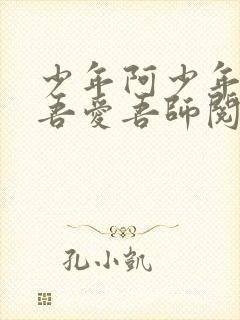 少年阿少年
吾愛吾師閱
孔小凱